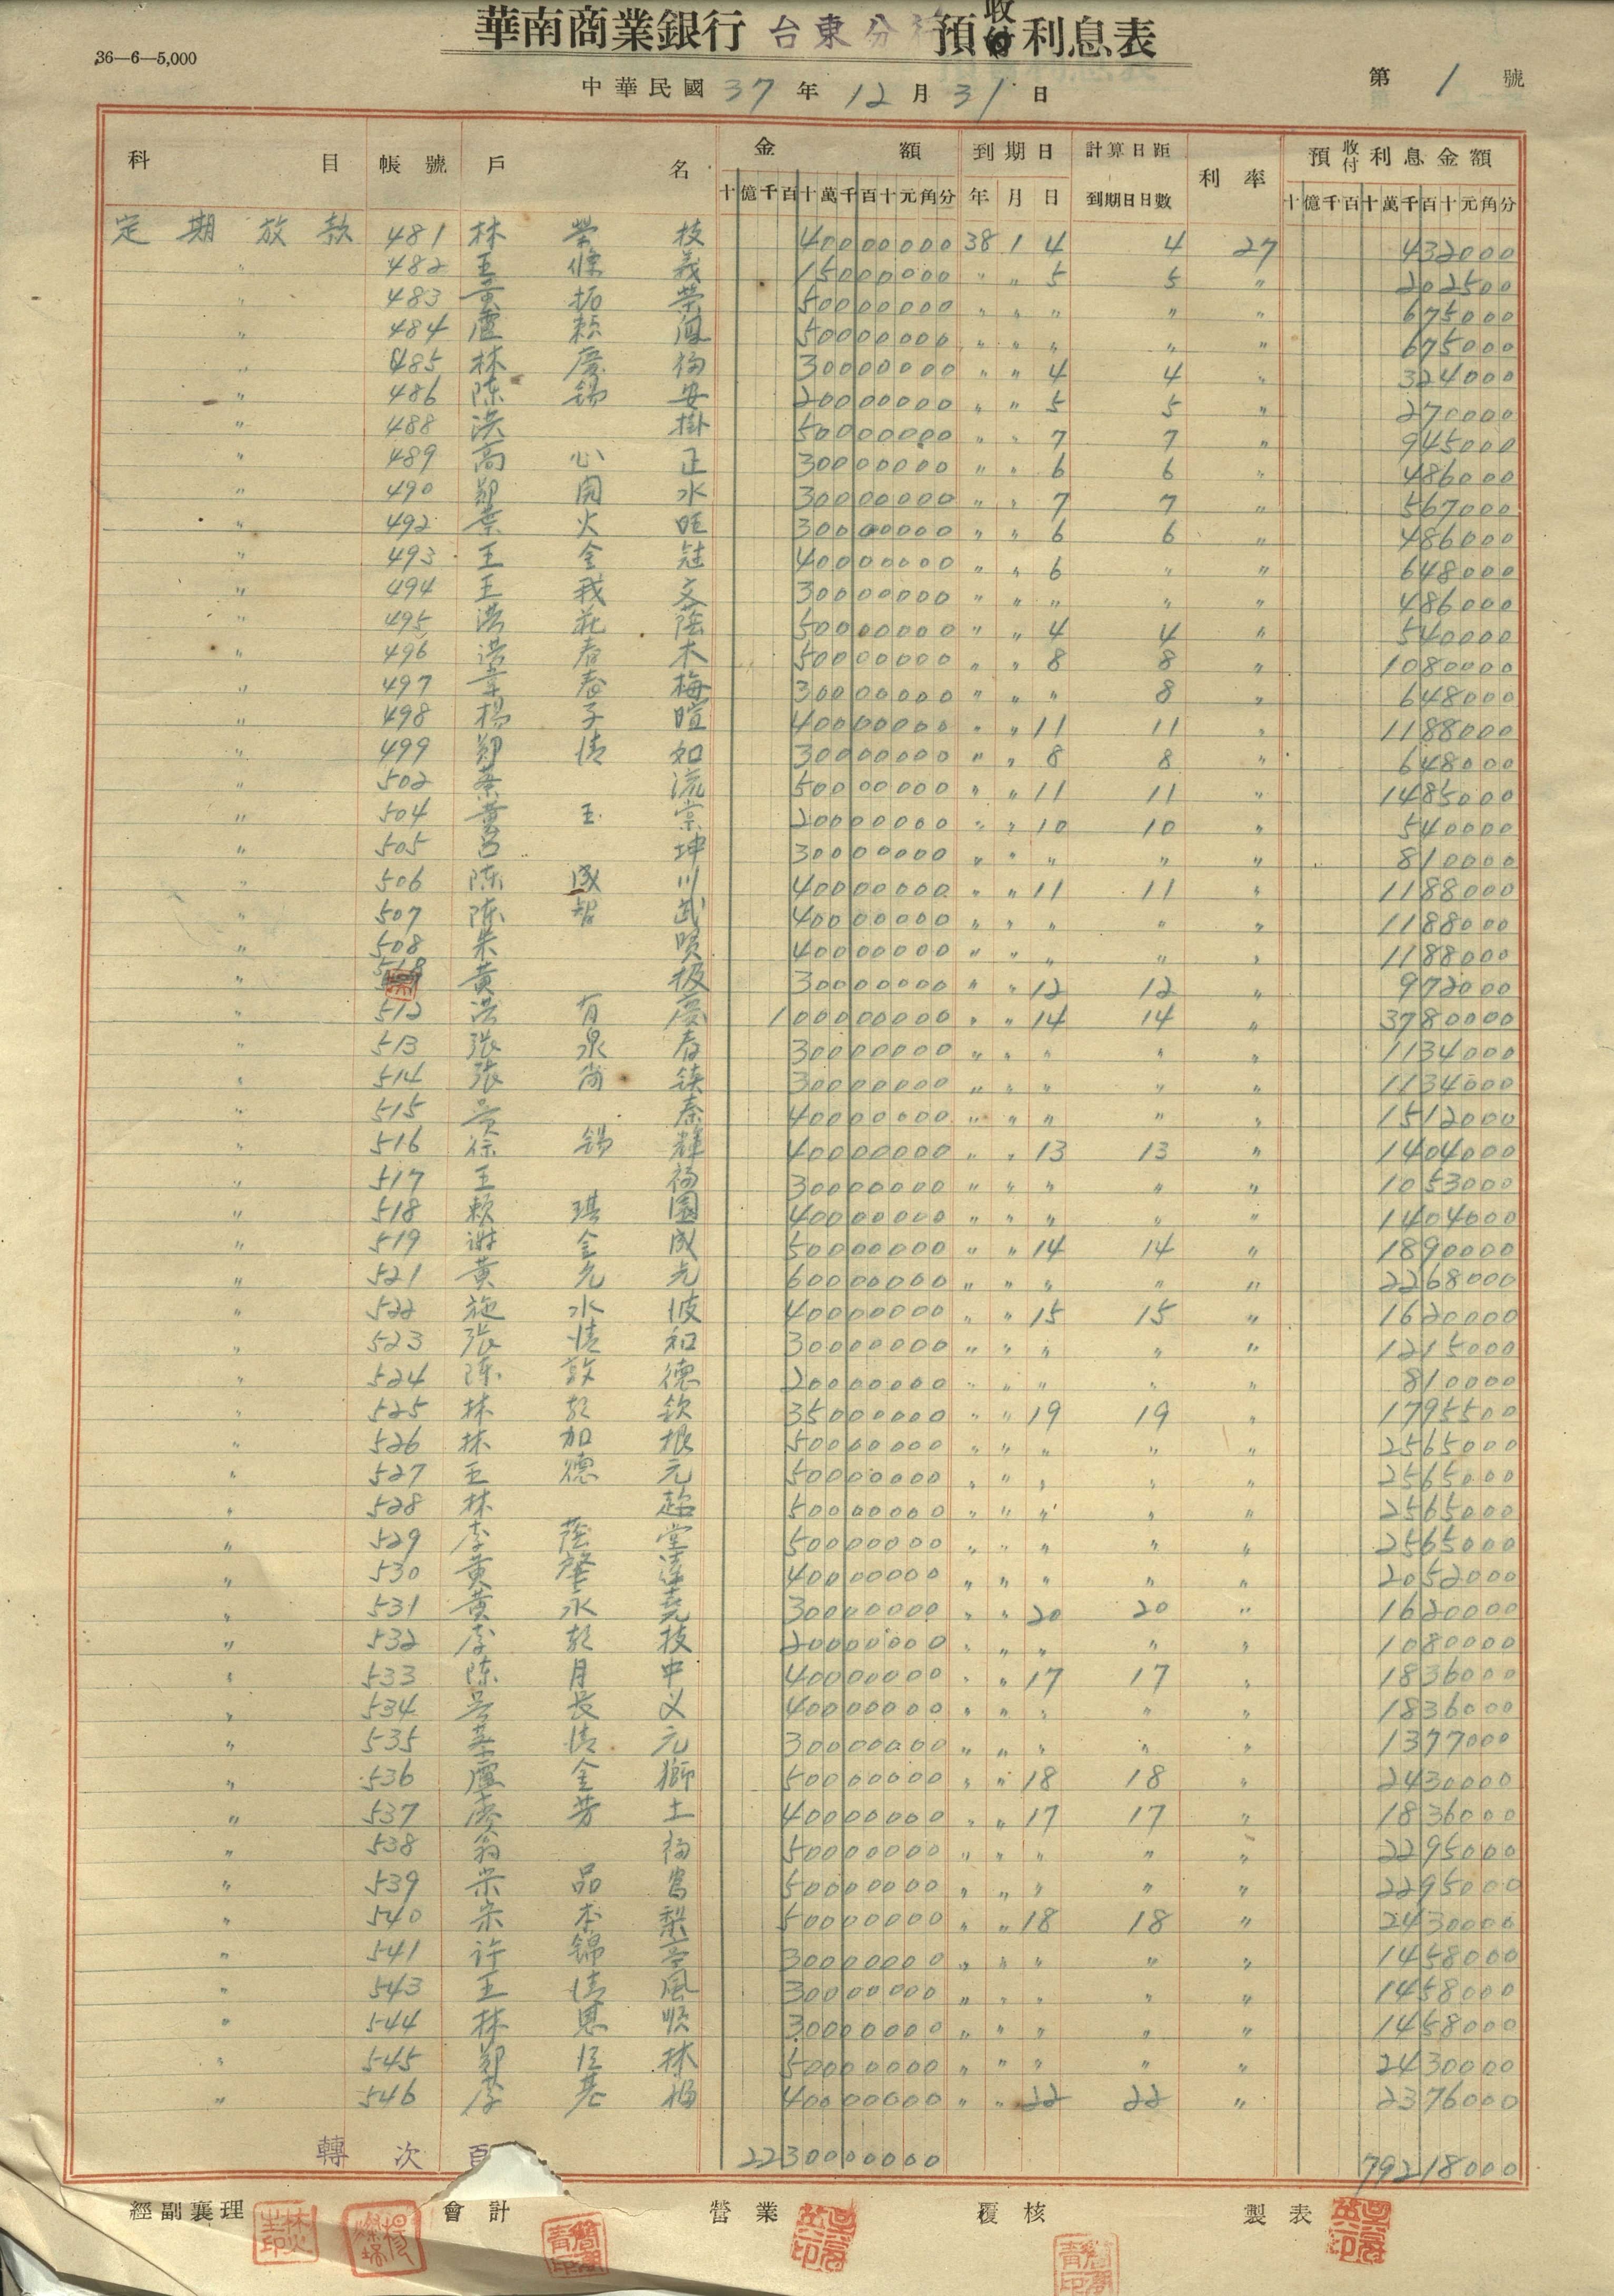 華南商業銀行 台東分行 預收付利息表
36—6—5,000
中華民國 37 年 12 月 31 日
第 1 號
科目 帳號 戶名 金額 到期日 計算日距到期日日數 利率 預收付利息金額
十億千百十萬千百十元角分 年 月 日 十億千百十萬千百十元角分
定期放款 481 林 枝 40000000 38 1 4 4 27 432000
〃 482 王 義 15000000 〃 〃 5 5 〃 202500
〃 483 黃 拓 榮 50000000 〃 〃 〃 〃 〃 675000
〃 484 盧 賴 50000000 〃 〃 〃 〃 〃 675000
〃 485 林 慶 福 30000000 〃 〃 4 4 〃 324000
〃 486 陳 錫 安 20000000 〃 〃 5 5 〃 270000
〃 488 洪 掛 50000000 〃 〃 7 7 〃 945000
〃 489 高 心 正 30000000 〃 〃 6 6 〃 486000
〃 490 鄭 開 水 30000000 〃 〃 7 7 〃 567000
〃 492 葉 火 旺 30000000 〃 〃 6 6 〃 486000
〃 493 王 金 40000000 〃 〃 6 〃 〃 648000
〃 494 王 我 文 30000000 〃 〃 〃 〃 〃 486000
〃 495 洪 蔭 50000000 〃 〃 4 4 〃 540000
〃 496 洪 春 木 50000000 〃 〃 8 8 〃 1080000
〃 497 章 春 梅 30000000 〃 〃 〃 8 〃 648000
〃 498 楊 子 瑄 40000000 〃 〃 11 11 〃 1188000
〃 499 鄭 清 如 30000000 〃 〃 8 8 〃 648000
〃 502 蔡 流 50000000 〃 〃 11 11 〃 1485000
〃 504 黃 玉 崇 20000000 〃 〃 10 10 〃 540000
〃 505 呂 坤 30000000 〃 〃 〃 〃 〃 810000
〃 506 陳 成 川 40000000 〃 〃 11 11 〃 1188000
〃 507 陳 智 武 40000000 〃 〃 〃 〃 〃 1188000
〃 508 朱 40000000 〃 〃 〃 〃 〃 1188000
〃 黃 振 30000000 〃 〃 12 12 〃 972000
〃 512 洪 有 慶 100000000 〃 〃 14 14 〃 3780000
〃 513 張 泉 春 30000000 〃 〃 〃 〃 〃 1134000
〃 514 張 尚 鎮 30000000 〃 〃 〃 〃 〃 1134000
〃 515 吳 泰 40000000 〃 〃 〃 〃 〃 1512000
〃 516 徐 錫 輝 40000000 〃 〃 13 13 〃 1404000
〃 517 王 福 30000000 〃 〃 〃 〃 〃 1053000
〃 518 賴 琪 園 40000000 〃 〃 〃 〃 〃 1404000
〃 519 謝 金 成 50000000 〃 〃 14 14 〃 1890000
〃 521 黃 允 光 60000000 〃 〃 〃 〃 〃 2268000
〃 522 施 水 波 40000000 〃 〃 15 15 〃 1620000
〃 523 張 清 和 30000000 〃 〃 〃 〃 〃 1215000
〃 524 陳 敦 德 20000000 〃 〃 〃 〃 〃 810000
〃 525 林 欽 35000000 〃 〃 19 19 〃 1795500
〃 526 林 加 根 50000000 〃 〃 〃 〃 〃 2565000
〃 527 王 德 元 50000000 〃 〃 〃 〃 〃 2565000
〃 528 林 超 50000000 〃 〃 〃 〃 〃 2565000
〃 529 李 蔭 堂 50000000 〃 〃 〃 〃 〃 2565000
〃 530 黃 肇 蓮 40000000 〃 〃 〃 〃 〃 2052000
〃 531 黃 永 堯 30000000 〃 〃 20 20 〃 1620000
〃 532 李 枝 20000000 〃 〃 〃 〃 〃 1080000
〃 533 陳 月 中 40000000 〃 〃 17 17 〃 1836000
〃 534 吳 長 义 40000000 〃 〃 〃 〃 〃 1836000
〃 535 葉 清 元 30000000 〃 〃 〃 〃 〃 1377000
〃 536 盧 金 獅 50000000 〃 〃 18 18 〃 2430000
〃 537 廖 芳 土 40000000 〃 〃 17 17 〃 1836000
〃 538 翁 福 50000000 〃 〃 〃 〃 〃 2295000
〃 539 宋 品 50000000 〃 〃 〃 〃 〃 2295000
〃 540 宋 李 梨 50000000 〃 〃 18 18 〃 2430000
〃 541 許 錦 30000000 〃 〃 〃 〃 〃 1458000
〃 543 王 清 風 30000000 〃 〃 〃 〃 〃 1458000
〃 544 林 恩 順 30000000 〃 〃 〃 〃 〃 1458000
〃 545 鄭 林 50000000 〃 〃 〃 〃 〃 2430000
〃 546 李 基 福 40000000 〃 〃 22 22 〃 2376000
轉次頁 2230000000 79218000
經副襄理 會計 營業 覆核 製表